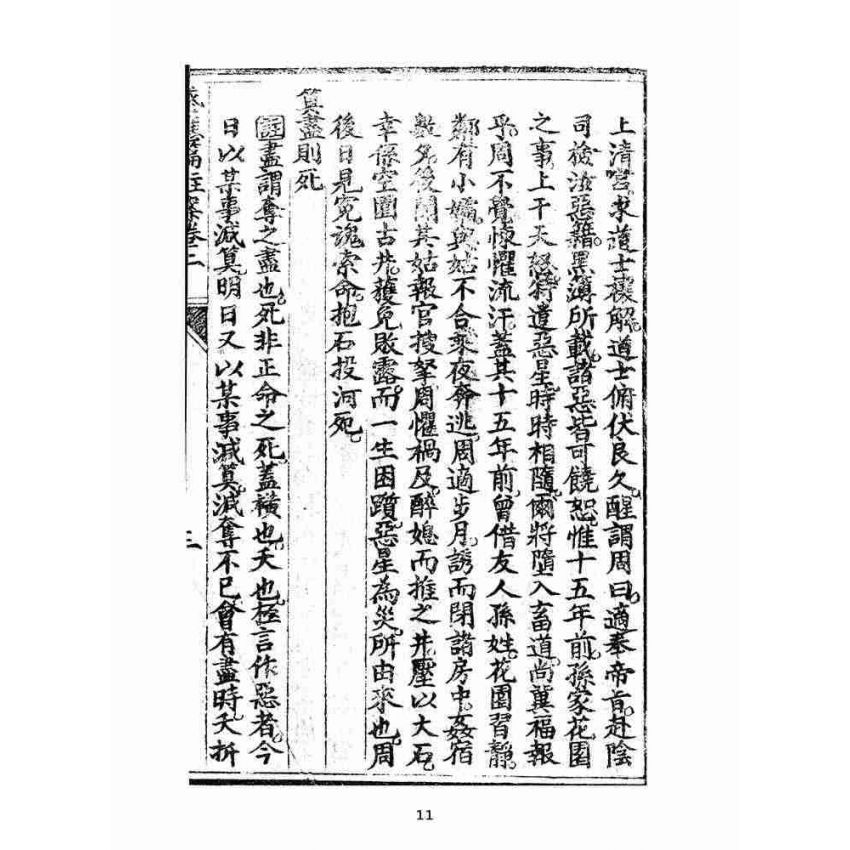 上清宮求道士禳解道士俯伏良久醒謂周曰適奉帝旨赴陰
司檢汝惡籍黑簿所載諸惡皆可饒恕惟十五年前孫家花園
之事上干天怒特遣惡星時時相隨爾將墮入畜道尚冀福報
乎周不覺悚懼流汗蓋其十五年前曾借友人孫姓花園習靜
鄰有小孀與姑不合乘夜奔逃周適步月誘而閉諸房中姦宿
數夕後聞其姑報官搜拏周懼禍及醉媳而推之井壓以大石
幸係空園古井獲免敗露而一生困躓惡星為災所由來也周
後日見冤魂索命抱石投河死
算盡則死
註盡謂奪之盡也死非正命之死蓋橫也夭也極言作惡者今
日以某事減算明日又以某事減算減奪不已會有盡時夭折
感應篇註案卷二
二
11